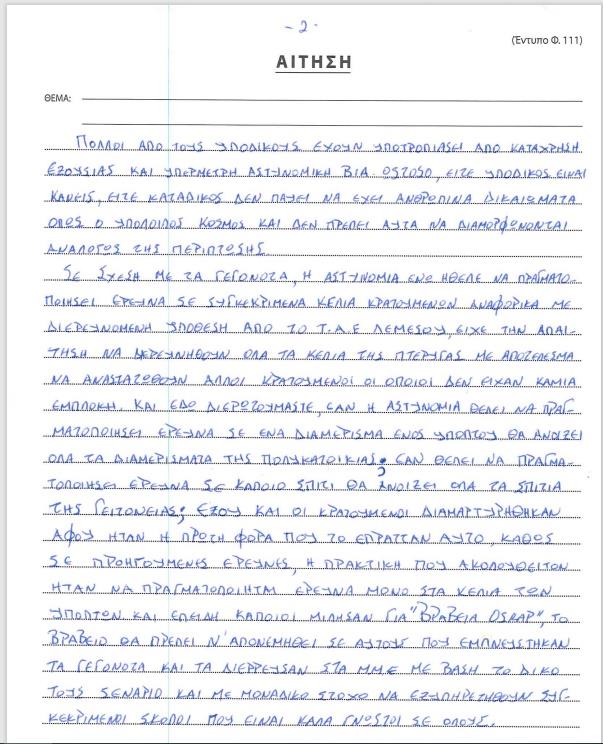 - 2 -
(Έντυπο Φ. 111)
ΑΙΤΗΣΗ
ΘΕΜΑ:
ΠΟΛΛΟΙ ΑΠΟ ΤΟΥΣ ΥΠΟΔΙΚΟΥΣ ΕΧΟΥΝ ΥΠΟΤΡΟΠΙΑΣΕΙ ΑΠΟ ΚΑΤΑΧΡΗΣΗ
ΕΞΟΥΣΙΑΣ ΚΑΙ ΥΠΕΡΜΕΤΡΗ ΑΣΤΥΝΟΜΙΚΗ ΒΙΑ. ΩΣΤΟΣΟ, ΕΙΤΕ ΥΠΟΔΙΚΟΣ ΕΙΝΑΙ
ΚΑΝΕΙΣ, ΕΙΤΕ ΚΑΤΑΔΙΚΟΣ ΔΕΝ ΠΑΥΕΙ ΝΑ ΕΧΕΙ ΑΝΘΡΩΠΙΝΑ ΔΙΚΑΙΩΜΑΤΑ
ΟΠΩΣ Ο ΥΠΟΛΟΙΠΟΣ ΚΟΣΜΟΣ ΚΑΙ ΔΕΝ ΠΡΕΠΕΙ ΑΥΤΑ ΝΑ ΔΙΑΜΟΡΦΩΝΟΝΤΑΙ
ΑΝΑΛΟΓΩΣ ΤΗΣ ΠΕΡΙΠΤΩΣΗΣ.
ΣΕ ΣΧΕΣΗ ΜΕ ΤΑ ΓΕΓΟΝΟΤΑ, Η ΑΣΤΥΝΟΜΙΑ ΕΝΩ ΗΘΕΛΕ ΝΑ ΠΡΑΓΜΑΤΟ-
ΠΟΙΗΣΕΙ ΕΡΕΥΝΑ ΣΕ ΣΥΓΚΕΚΡΙΜΕΝΑ ΚΕΛΙΑ ΚΡΑΤΟΥΜΕΝΩΝ ΑΝΑΦΟΡΙΚΑ ΜΕ
ΔΙΕΡΕΥΝΟΜΕΝΗ ΥΠΟΘΕΣΗ ΑΠΟ ΤΟ Τ.Α.Ε ΛΕΜΕΣΟΥ, ΕΙΧΕ ΤΗΝ ΑΠΑΙ-
ΤΗΣΗ ΝΑ ΔΙΕΡΕΥΝΗΘΟΥΝ ΟΛΑ ΤΑ ΚΕΛΙΑ ΤΗΣ ΠΤΕΡΥΓΑΣ ΜΕ ΑΠΟΤΕΛΕΣΜΑ
ΝΑ ΑΝΑΣΤΑΤΩΘΟΥΝ ΑΛΛΟΙ ΚΡΑΤΟΥΜΕΝΟΙ ΟΙ ΟΠΟΙΟΙ ΔΕΝ ΕΙΧΑΝ ΚΑΜΙΑ
ΕΜΠΛΟΚΗ. ΚΑΙ ΕΔΩ ΔΙΕΡΩΤΟΥΜΑΣΤΕ, ΕΑΝ Η ΑΣΤΥΝΟΜΙΑ ΘΕΛΕΙ ΝΑ ΠΡΑΓ-
ΜΑΤΟΠΟΙΗΣΕΙ ΕΡΕΥΝΑ ΣΕ ΕΝΑ ΔΙΑΜΕΡΙΣΜΑ ΕΝΟΣ ΥΠΟΠΤΟΥ ΘΑ ΑΝΟΙΞΕΙ
ΟΛΑ ΤΑ ΔΙΑΜΕΡΙΣΜΑΤΑ ΤΗΣ ΠΟΛΥΚΑΤΟΙΚΙΑΣ; ΕΑΝ ΘΕΛΕΙ ΝΑ ΠΡΑΓΜΑ-
ΤΟΠΟΙΗΣΕΙ ΕΡΕΥΝΑ ΣΕ ΚΑΠΟΙΟ ΣΠΙΤΙ ΘΑ ΑΝΟΙΞΕΙ ΟΛΑ ΤΑ ΣΠΙΤΙΑ
ΤΗΣ ΓΕΙΤΟΝΕΙΑΣ; ΕΞΟΥ ΚΑΙ ΟΙ ΚΡΑΤΟΥΜΕΝΟΙ ΔΙΑΜΑΡΤΥΡΗΘΗΚΑΝ
ΑΦΟΥ ΗΤΑΝ Η ΠΡΩΤΗ ΦΟΡΑ ΠΟΥ ΤΟ ΕΠΡΑΤΤΑΝ ΑΥΤΟ, ΚΑΘΩΣ
ΣΕ ΠΡΟΗΓΟΥΜΕΝΕΣ ΕΡΕΥΝΕΣ, Η ΠΡΑΚΤΙΚΗ ΠΟΥ ΑΚΟΛΟΥΘΕΙΤΟΝ
ΗΤΑΝ ΝΑ ΠΡΑΓΜΑΤΟΠΟΙΗΤΜ ΕΡΕΥΝΑ ΜΟΝΟ ΣΤΑ ΚΕΛΙΑ ΤΩΝ
ΥΠΟΠΤΩΝ ΚΑΙ ΕΠΕΙΔΗ ΚΑΠΟΙΟΙ ΜΙΛΗΣΑΝ ΓΙΑ "ΒΡΑΒΕΙΑ ΟSΚΑΡ", ΤΟ
ΒΡΑΒΕΙΟ ΘΑ ΠΡΕΠΕΙ Ν' ΑΠΟΝΕΜΗΘΕΙ ΣΕ ΑΥΤΟΥΣ ΠΟΥ ΕΜΠΝΕΥΣΤΗΚΑΝ
ΤΑ ΓΕΓΟΝΟΤΑ ΚΑΙ ΤΑ ΔΙΕΡΡΕΥΣΑΝ ΣΤΑ Μ.Μ.Ε ΜΕ ΒΑΣΗ ΤΟ ΔΙΚΟ
ΤΟΥΣ ΣΕΝΑΡΙΟ ΚΑΙ ΜΕ ΜΟΝΑΔΙΚΟ ΣΤΟΧΟ ΝΑ ΕΞΥΠΗΡΕΤΗΘΟΥΝ ΣΥΓ-
ΚΕΚΡΙΜΕΝΟΙ ΣΚΟΠΟΙ ΠΟΥ ΕΙΝΑΙ ΚΑΛΑ ΓΝΩΣΤΟΙ ΣΕ ΟΛΟΥΣ.